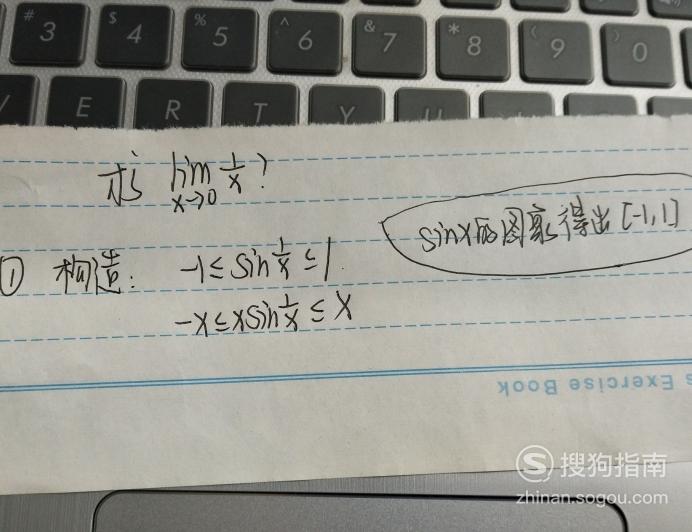 # 3
$ 4
% 5
^ 6
& 7
* 8
( 9
) 0
E
R
T
Y
U
求 lim x→0 1/x ?
sinx的图象得出[-1,1]
① 构造: -1≤sin 1/x ≤1
-x≤xsin 1/x ≤ x
s Exercise Book
搜狗指南
zhinan.sogou.com